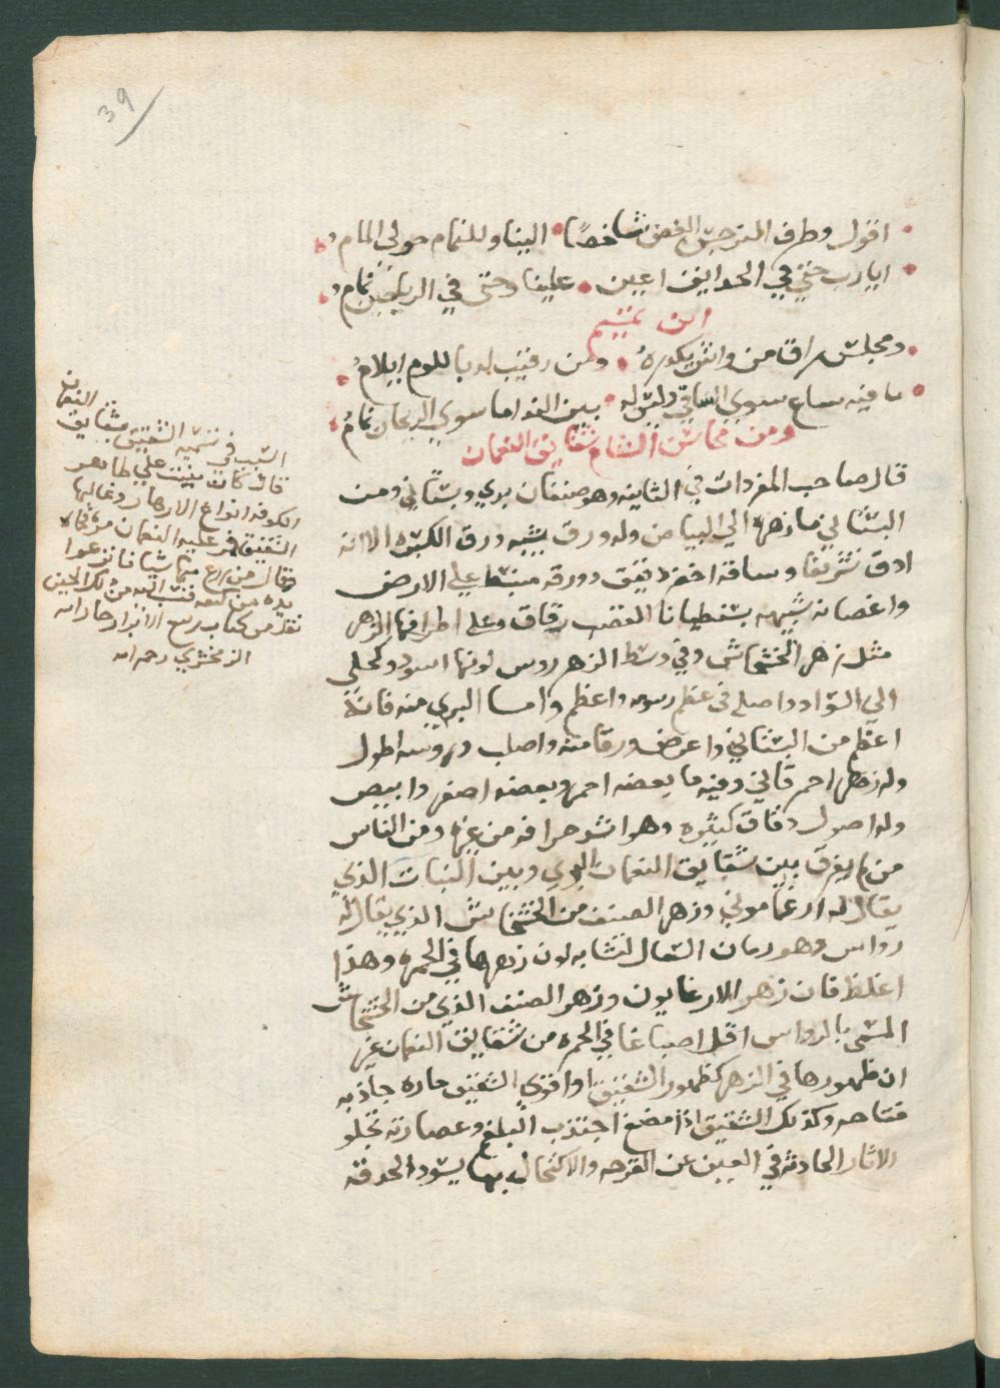 39
اقول وطرف النرجس الغض شاخصا * الينا وللنمام حولي المام
ايا رب حتي في الحدايق اعين * علينا وحتى في الرياحين نمام
ابن تميم
ومجلس راق من واش يكدره * ومن رقيب له باللوم ايلام
ما فيه ساع سوى الساقي وليس له * بين الندامى سوي الريحان نمام
ومن محاسن الشام شقايق النعمان
قال صاحب المفردات في الثانيه وهو صنفان بري وبستاني ومن
البستاني ما زهره الي البياض وله ورق يشبه ورق الكزبره الا انه
ادق تشريفا وساقه اخضر دقيق وورقه منبسط علي الارض
واغصانه شبيهه بشظيانا القضب رقاق وعلى اطرافها الزهر
مثل زهر الخشخاش وفي وسط الزهر روس لونها اسود وكحلي
الي السواد واصله في عظم زيتونه واعظم واما البري منه فانه
اعظم من البستاني واعرض ورقا منه واصلب وروسه اطول
وله زهر احمر قاني وفيه ما بعضه احمر وبعضه اصفر وابيض
وله اصول دقاق كثيره وهو اشد حرافه من غيره ومن الناس
من لم يفرق بين شقايق النعمان البري وبين النبات الذي
يقال له ارغاموني وزهر الصنف من الخشخاش الذي يقال له
رواس وهو رمان السعال لتشابه لون زهرها في الحمره وهذا
اغلظ فان زهر الارغايون وزهر الصنف الذي من الخشخاش
المسمى بالرواس اقل اصباغا في الحمره من شقايق النعمان غير
ان ظهورها في الزهر كظهور الشقيق او اقوى الشقيق حاره جاذبه
فتاحه وكذلك الشقيق اذا مضغ اجتذب البلغم وعصارته تجلو
الاثار الحادثه في العين عن القرحه والاكتحال بها يسود الحدقه
السبب في تسميه الشقيق بشقايق النعمان
قال كانت ينبت علي ظاهر
الكوفه انواع الازهار وغالبها
الشقيق فمر عليه النعمان مره فجاه
فقال من نزع منها شيا فانزعوا
يده من كتفه فنسب اليه من ذلك الحين
نقل من كتاب ربيع الابرار جار الله
الزمخشري رحمه الله